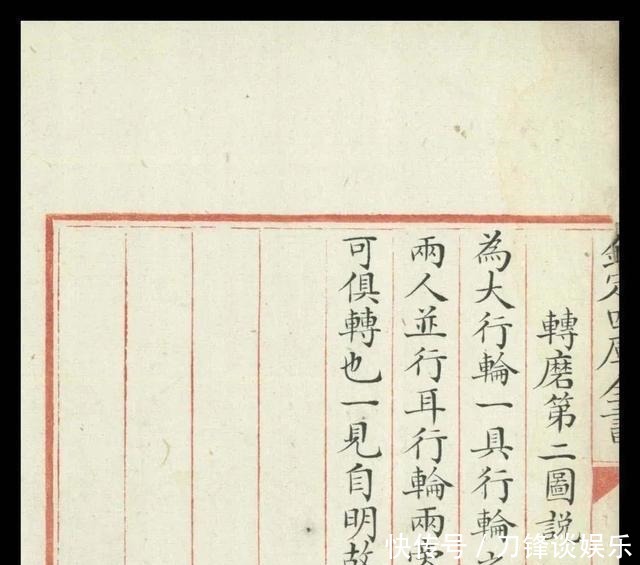 欽定四庫全書
轉磨第二圖説
為大行輪一具行輪之
兩人並行耳行輪兩
可俱轉也一見自明故
快传号/刀锋谈娱乐